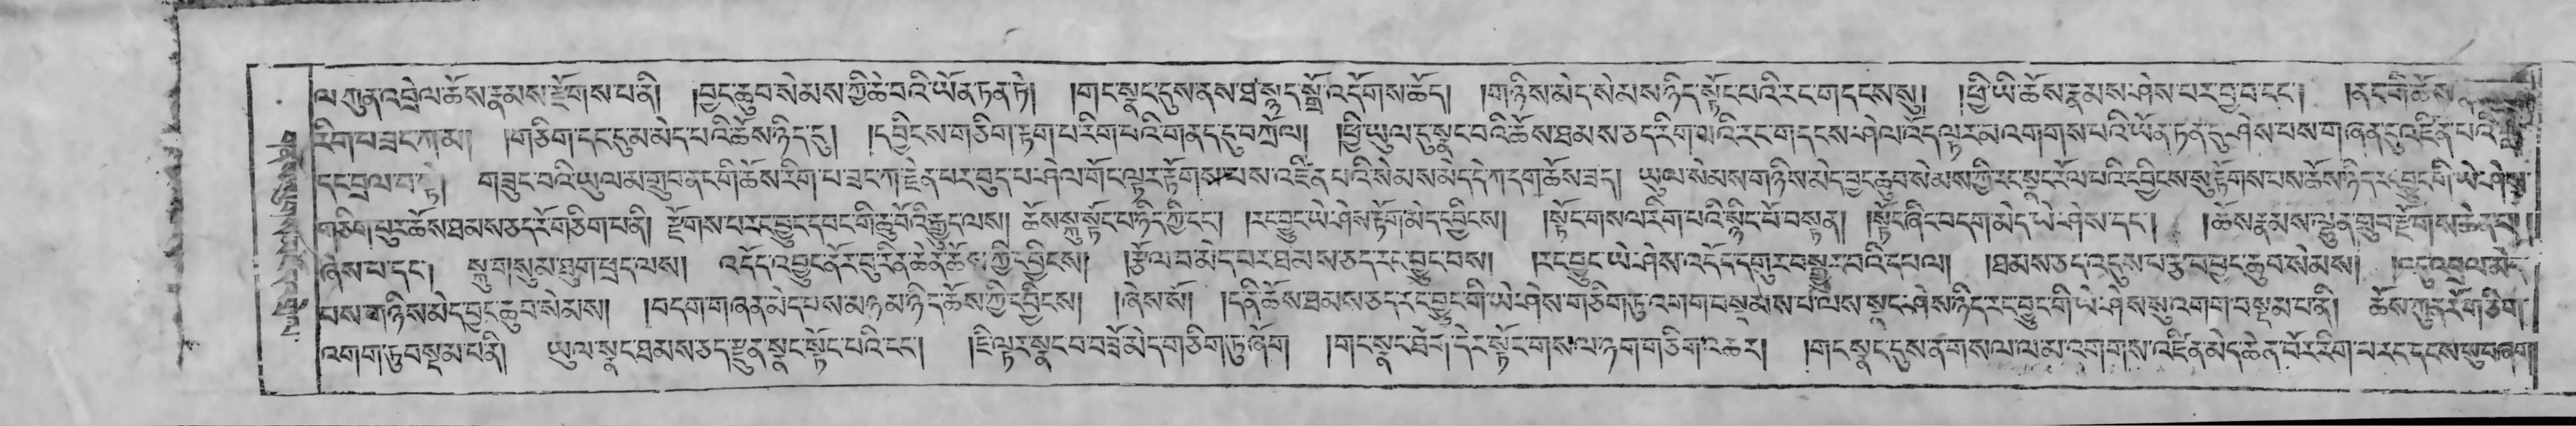 ལ་ཀུན་འབྲེལ་ཆོས་རྣམས་རྫོགས་པ་ནི། །བྱང་ཆུབ་སེམས་ཀྱི་ཆེ་བའི་ཡོན་ཏན་ཏེ། །གང་སྣང་དུས་ནས་ཐ་སྙད་སྒྲོ་འདོགས་ཆོད། །གཉིས་མེད་སེམས་ཉིད་སྟོང་པའི་རང་གདངས་སུ། །ཕྱི་ཡི་ཆོས་རྣམས་ཤེས་པར་བྱ་བ་དང་། །ནང་གི་ཆོས་
རིག་པ་ཟང་ཀ་མ། །གཅིག་དང་དུ་མ་མེད་པའི་ཆོས་ཉིད་དུ། །དབྱིངས་གཅིག་རྟག་པ་རིག་པའི་གནད་དུ་བཀྲོལ། །ཕྱི་ཡུལ་དུ་སྣང་བའི་ཆོས་ཐམས་ཅད་རིག་པའི་རང་གདངས་ཤེལ་འོད་ལྟར་མ་འགགས་པའི་ཡོན་ཏན་དུ་ཤེས་པས་གཞན་དུ་འཛིན་པའི་
དང་བྲལ་བ་སྟེ། གཟུང་བའི་ཡུལ་མ་གྲུབ་ནང་གི་ཆོས་རིག་པ་ཟང་ཀ་རྗེན་པར་བུད་པ་ཤེལ་གོང་ལྟར་རྟོགས་པས་འཛིན་པའི་སེམས་མེད་དེ་ཀ་དག་ཆོས་ཟད། ཡུལ་སེམས་གཉིས་མེད་བྱང་ཆུབ་སེམས་ཀྱི་རང་སྣང་རོལ་པའི་དབྱིངས་སུ་རྟོགས་པས་ཆོས་ཉིད་རང་བྱུང་གི་ཡེ་ཤེས་
གཅིག་པུར་ཆོས་ཐམས་ཅད་རོ་གཅིག་པ་ནི། རྫོགས་པ་རང་བྱུང་དབང་གི་ཆུ་བོའི་རྒྱུད་ལས། ཆོས་སྐུ་སྟོང་པ་ཉིད་ཀྱི་ངང་། །རང་བྱུང་ཡེ་ཤེས་རྟོག་མེད་དབྱིངས། །སྟོང་གསལ་རིག་པའི་སྙིང་པོ་བསྟན། །སྟོང་ཞིང་བདག་མེད་ཡེ་ཤེས་དང་། །ཆོས་རྣམས་ལྷུན་གྲུབ་རྫོགས་ཆེན་པོ། །
ཞེས་པ་དང་། སྐུ་གསུམ་ཐུག་ཕྲད་ལས། འདོད་འབྱུང་ནོར་བུ་རིན་ཆེན་ཆོས་ཀྱི་དབྱིངས། །རྩོལ་བ་མེད་པར་ཐམས་ཅད་རང་བྱུང་བས། །རང་བྱུང་ཡེ་ཤེས་འདོད་དགུར་བསྒྱུར་བའི་དཔལ། །ཐམས་ཅད་འདུས་པ་རྩ་བ་བྱང་ཆུབ་སེམས། །འདུ་འབྲལ་མེད་
པས་གཉིས་མེད་བྱང་ཆུབ་སེམས། །བདག་གཞན་མེད་པས་མཉམ་ཉིད་ཆོས་ཀྱི་དབྱིངས། །ཞེས་སོ། །དེ་ནི་ཆོས་ཐམས་ཅད་རང་བྱུང་གི་ཡེ་ཤེས་གཅིག་ཏུ་འགག་བསྡམས་པ་ལས་སྣང་ཤེས་ཉིད་རང་བྱུང་གི་ཡེ་ཤེས་སུ་འགག་བསྡམ་པ་ནི། ཆོས་ཀུན་རོ་གཅིག་
འགག་ཏུ་བསྡམ་པ་ནི། ཡུལ་སྣང་ཐམས་ཅད་རྫུན་སྣང་སྟོང་པའི་ངང་། །ཇི་ལྟར་སྣང་བ་བཟོ་མེད་གཅིག་ཏུ་ཞོག །གང་སྣང་ཐོང་དེར་སྟོང་གསལ་ཉག་གཅིག་འཆར། །གང་སྣང་དུས་ན་གསལ་ལ་མ་འགགས་འཛིན་མེད་ཆེན་པོར་རིག་པ་རང་དངས་